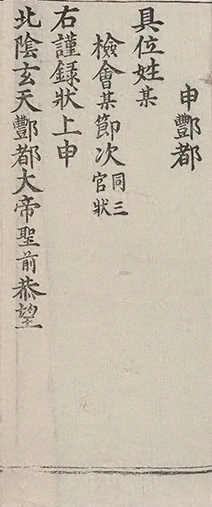 申酆都
具位姓某
檢會某節次同三官狀
右謹録狀上申
北陰玄天酆都大帝聖前恭望